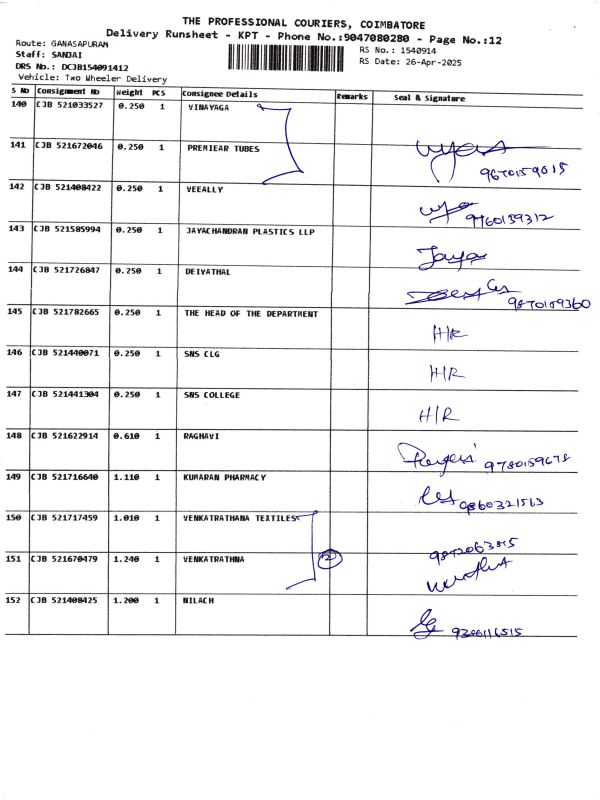 THE PROFESSIONAL COURIERS, COIMBATORE
Delivery Runsheet - KPT - Phone No.:9047080280 - Page No.:12
Route: GANASAPURAM
RS No.: 1540914
Staff: SANJAI
RS Date: 26-Apr-2025
DRS No.: DCJB154091412
Vehicle: Two Wheeler Delivery
S No Consignment No Weight PCS Consignee Details Remarks Seal & Signature
140 CJB 521033527 0.250 1 VINAYAGA
141 CJB 521672046 0.250 1 PREMIEAR TUBES
9670159015
142 CJB 521408422 0.250 1 VEEALLY
9760159312
143 CJB 521585994 0.250 1 JAYACHANDRAN PLASTICS LLP
Jaya
144 CJB 521726847 0.250 1 DEIVATHAL
9870159360
145 CJB 521782665 0.250 1 THE HEAD OF THE DEPARTMENT
H/R
146 CJB 521440071 0.250 1 SNS CLG
H/R
147 CJB 521441304 0.250 1 SNS COLLEGE
H/R
148 CJB 521622914 0.610 1 RAGHAVI
9780159678
149 CJB 521716640 1.110 1 KUMARAN PHARMACY
9860321563
150 CJB 521717459 1.010 1 VENKATRATHANA TEXTILES
151 CJB 521670479 1.240 1 VENKATRATHNA 2
152 CJB 521408425 1.200 1 NILACH